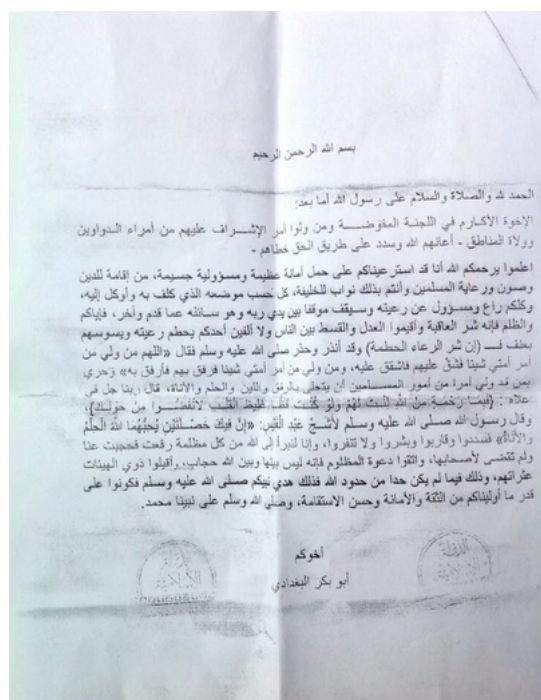 بسم الله الرحمن الرحيم
الحمد لله والصلاة والسلام على رسول الله أما بعد:
الإخوة الأكارم في اللجنة المفوضة ومن ولوا أمر الإشراف عليهم من أمراء الدواوين
وولاة المناطق - أعانهم الله وسدد على طريق الحق خطاهم -
اعلموا يرحمكم الله أنا قد استرعيناكم على حمل أمانة عظيمة ومسؤولية جسيمة، من إقامة للدين
وصون ورعاية المسلمين وأنتم بذلك نواب للخليفة، كل حسب موضعه الذي كلف به وأوكل إليه،
وكلكم راع ومسؤول عن رعيته وسيقف موقفا بين يدي ربه وهو سائله عما قدم وأخر، فإياكم
والظلم فإنه شر العاقبة وأقيموا العدل والقسط بين الناس ولا ألفين أحدكم يحطم رعيته ويسوسهم
بعنف فـ (إن شر الرعاء الحطمة) وقد أنذر وحذر صلى الله عليه وسلم فقال «اللهم من ولي من
أمر أمتي شيئا فشق عليهم فاشقق عليه، ومن ولي من أمر أمتي شيئا فرفق بهم فأرفق به» وحري
بمن قد ولي أمرا من أمور المسلمين أن يتحلى بالرفق واللين والحلم والأناة، قال ربنا جل في
علاه : {فَبِمَا رَحْمَةٍ مِنَ اللَّهِ لِنْتَ لَهُمْ وَلَوْ كُنْتَ فَظًّا غَلِيظَ الْقَلْبِ لَانْفَضُّوا مِنْ حَوْلِكَ}،
وقال رسول الله صلى الله عليه وسلم لأشج عبد القيس: «إِنَّ فِيكَ خَصْلَتَيْنِ يُحِبُّهُمَا اللَّهُ الْحِلْمُ
وَالْأَنَاةُ» فسددوا وقاربوا وبشروا ولا تنفروا، وإنا لنبرأ إلى الله من كل مظلمة رفعت فحجبت عنا
ولم تقتضى لأصحابها، واتقوا دعوة المظلوم فإنه ليس بينها وبين الله حجاب، وأقيلوا ذوي الهيئات
عثراتهم، وذلك فيما لم يكن حدا من حدود الله فذلك هدي نبيكم صلى الله عليه وسلم فكونوا على
قدر ما أوليناكم من الثقة والأمانة وحسن الاستقامة، وصلي الله وسلم على نبينا محمد.
أخوكم
أبو بكر البغدادي
الدولة
الإسلامية
الدولة
الإسلامية